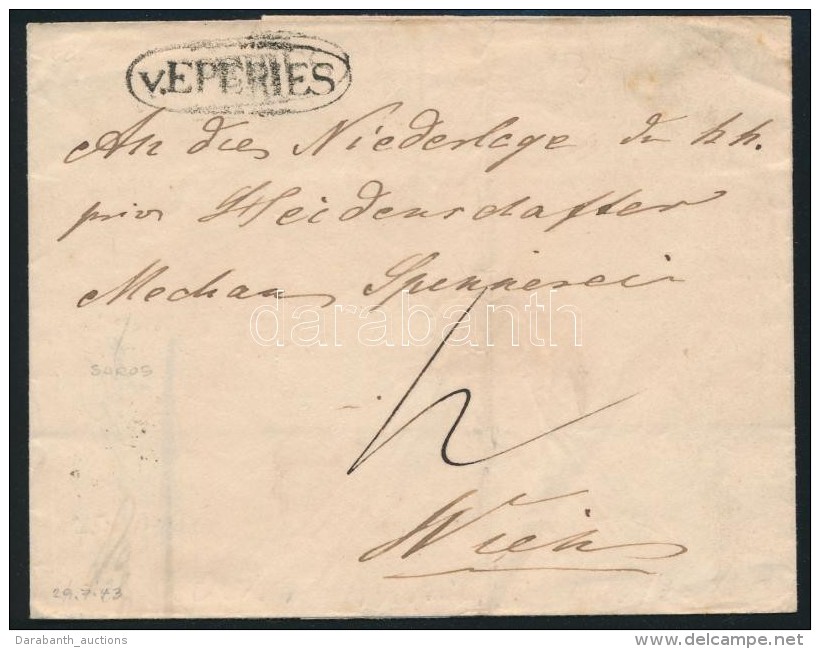 v. EPERIES
An die Niederlage der h h.
priv Heidenschafter
Mechan Spinnerei
darabanth
SOROS
Wien
29.7.43
Darabanth_auctions
www.delcampe.net